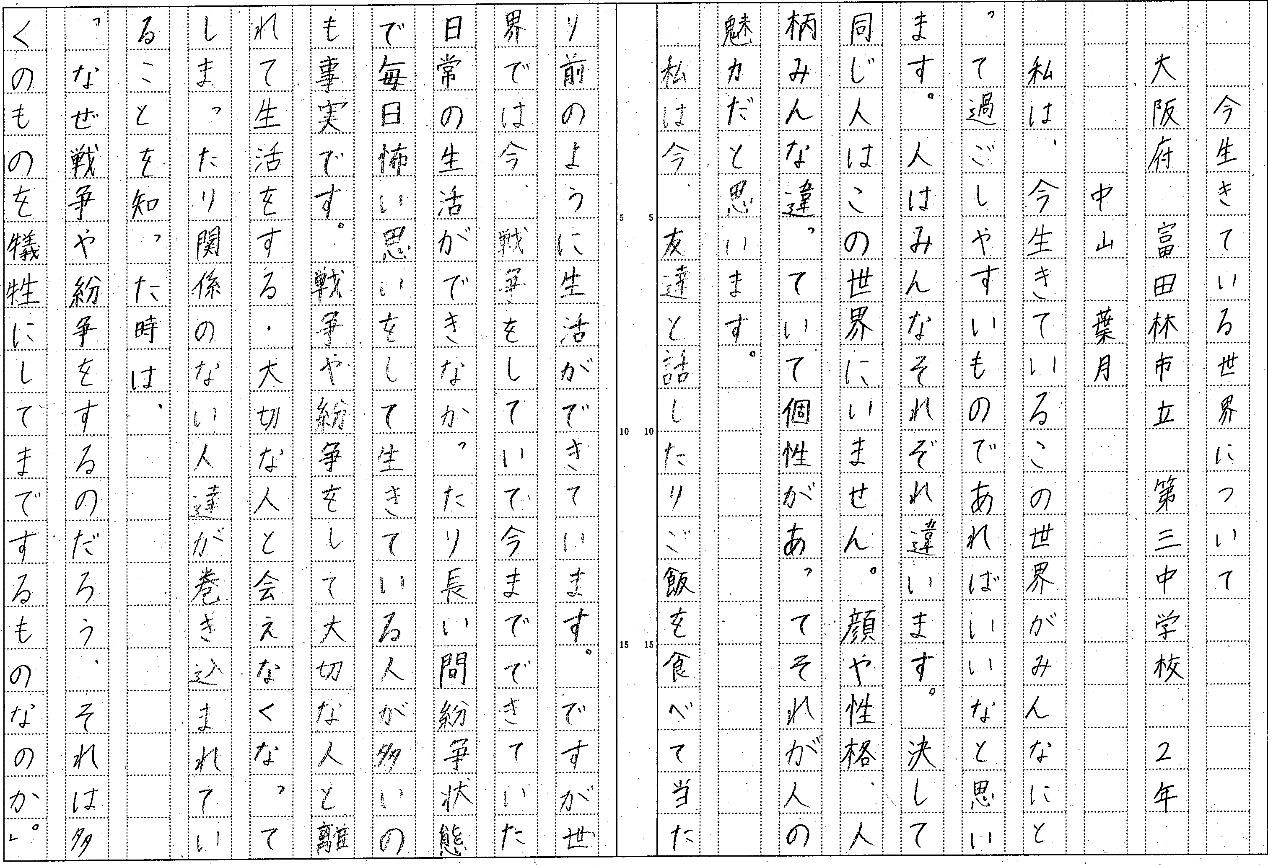 今生きている世界について
大阪府 富田林市立 第三中学校 2年
中山 葉月
私は、今生きているこの世界がみんなにと
って過ごしやすいものであればいいなと思い
ます。人はみんなそれぞれ違います。決して
同じ人はこの世界にいません。顔や性格、人
柄みんな違っていて個性があってそれが人の
魅力だと思います。
私は今、友達と話したりご飯を食べて当た
り前のように生活ができています。ですが世
界では今、戦争をしていて今までできていた
日常の生活ができなかったり長い間紛争状態
で毎日怖い思いをして生きている人が多いの
も事実です。戦争や紛争をして大切な人と離
れて生活をする・大切な人と会えなくなって
しまったり関係のない人達が巻き込まれてい
ることを知った時は、
「なぜ戦争や紛争をするのだろう、それは多
くのものを犠牲にしてまでするものなのか。」
5 5
10 10
15 15